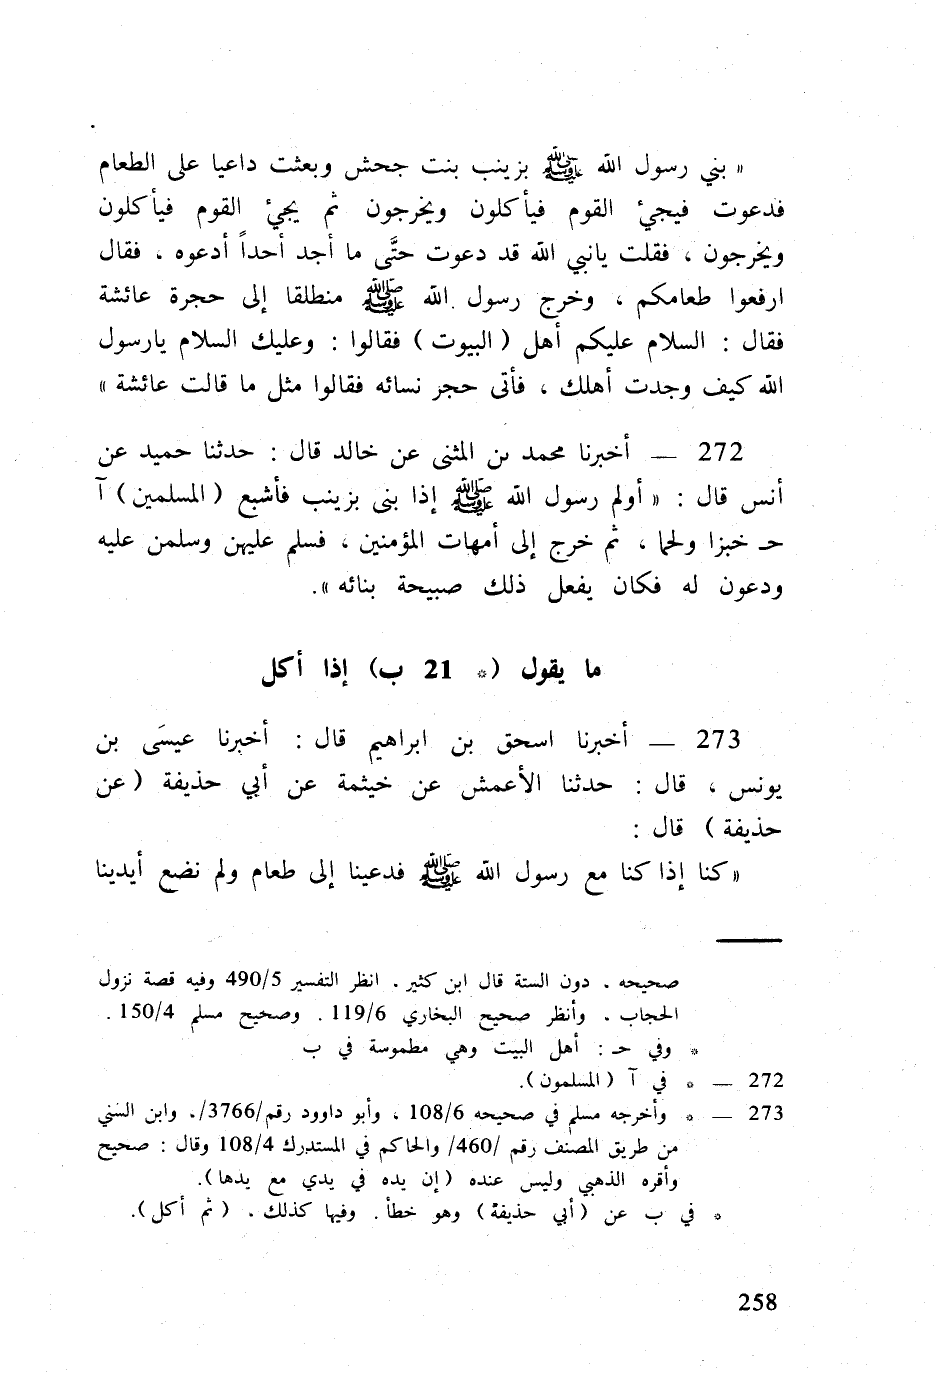 « بني رسول الله ﷺ بزينب بنت جحش وبعثت داعيا على الطعام
فدعوت فيجيء القوم فيأكلون ويخرجون ثم يجيء القوم فيأكلون
ويخرجون ، فقلت يانبي الله قد دعوت حتَّى ما أجد أحداً أدعوه . فقال
ارفعوا طعامكم ، وخرج رسول الله ﷺ منطلقا إلى حجرة عائشة
فقال : السلام عليكم أهل ( البيوت ) فقالوا : وعليك السلام يارسول
الله كيف وجدت أهلك ، فأتى حجر نسائه فقالوا مثل ما قالت عائشة »
272 — أخبرنا محمد بن المثنى عن خالد قال : حدثنا حميد عن
أنس قال : « أولم رسول الله ﷺ إذا بنى بزينب فأشبع ( المسلمين ) آ
حـ خبزا ولحما ، ثم خرج إلى أمهات المؤمنين ، فسلم عليهن وسلمن عليه
ودعون له فكان يفعل ذلك صبيحة بنائه ».
ما يقول (* 21 ب) إذا أكل
273 — أخبرنا اسحق بن ابراهيم قال : أخبرنا عيسَى بن
يونس ، قال : حدثنا الأعمش عن خيثمة عن أبي حذيفة ( عن
حذيفة ) قال :
« كنا إذا كنا مع رسول الله ﷺ فدعينا إلى طعام ولم نضع أيدينا
صحيحه . دون الستة قال ابن كثير . انظر التفسير 490/5 وفيه قصة نزول
الحجاب . وأنظر صحيح البخاري 119/6 . وصحيح مسلم 150/4 .
* وفي حـ : أهل البيت وهي مطموسة في ب
272 — * في آ ( المسلمون ).
273 — * وأخرجه مسلم في صحيحه 108/6 ، وأبو داوود رقم/3766/. وابن السُني
من طريق المصنف رقم /460/ والحاكم في المستدرك 108/4 وقال : صحيح
وأقره الذهبي وليس عنده ( إن يده في يدي مع يدها ).
* في ب عن ( أبي حذيفة ) وهو خطأ . وفيها كذلك . ( ثم أكل ).
258